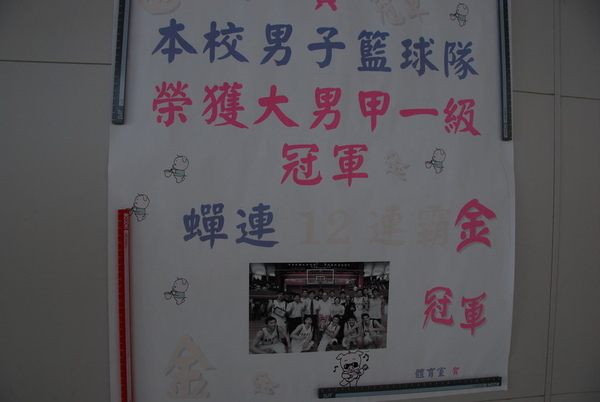 賀
冠軍
本校男子籃球隊
榮獲大男甲一級
冠軍
蟬連12連霸金
冠軍
金
體育室 賀